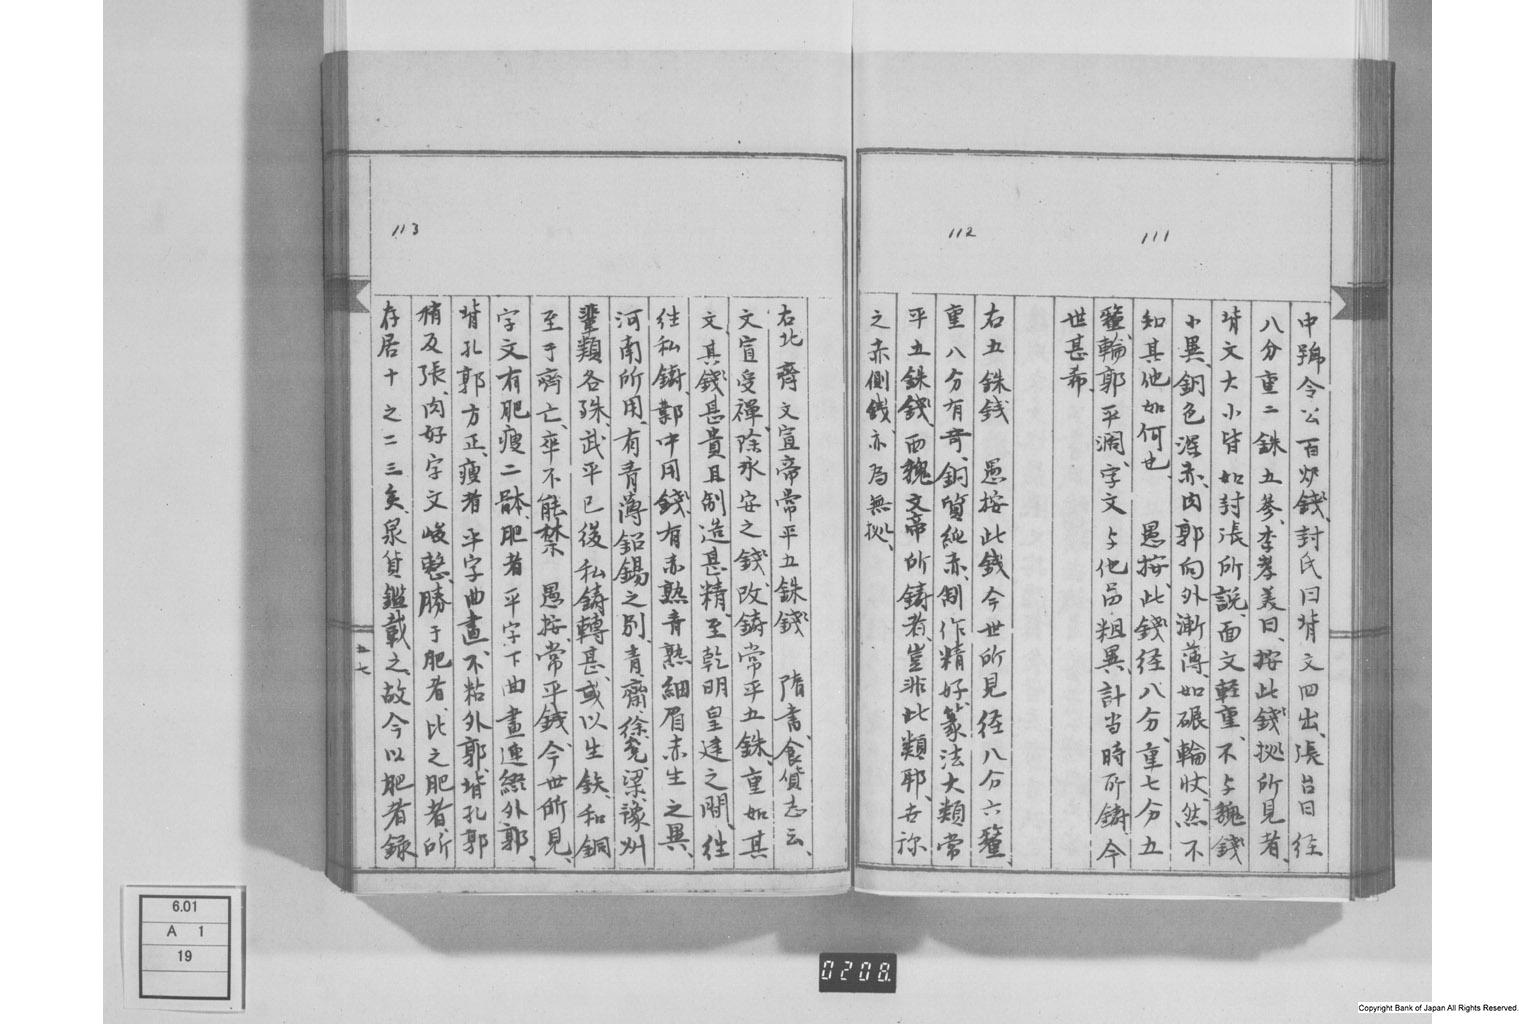 111
中號令公百炉錢、封氏曰、背文四出、張台曰、径
八分重二銖五參、李孝美曰、按此錢拠所見者、
背文大小皆如封張所説、面文軽重、不与魏錢
小異、銅色深赤、肉郭向外漸薄、如碾輪状、然不
知其他如何也、愚按、此錢径八分、重七分五
釐、輪郭平濶、字文与他品粗異、計当時所鋳、今
世甚希
112
右五銖銭　愚按此銭今世所見径八分六釐、
重八分有奇、銅質純赤、制作精好、篆法大類常
平五銖錢、西魏文帝所鋳者、豈非此類耶、古称
之赤側銭、亦為無拠、
113
右北齊文宣帝常平五銖錢　隋書食貨志云、
文宣受禅、除永安之錢、改鋳常平五銖、重如其
文、其錢甚貴且制造甚精、至乾明皇建之間、往
往私鋳、鄴中用錢、有赤熟青熟細眉赤生之異、
河南所用、有青薄鉛錫之別、青齊徐兗梁豫州
輩類各殊、武平已後、私鋳轉甚、或以生鉄、和銅
至于齊亡、卒不能禁　愚按、常平錢、今世所見、
字文有肥痩二躰、肥者平字下曲畫連綴外郭、
背孔郭方正、痩者平字曲畫、不粘外郭、背孔郭
稍及張、肉好字文峻整、勝于肥者、比之肥者、所
存居十之二三矣、泉貨鑑載之、故今以肥者録
五七
6.01
A 1
19
0208.
Copyright Bank of Japan All Rights Reserved.